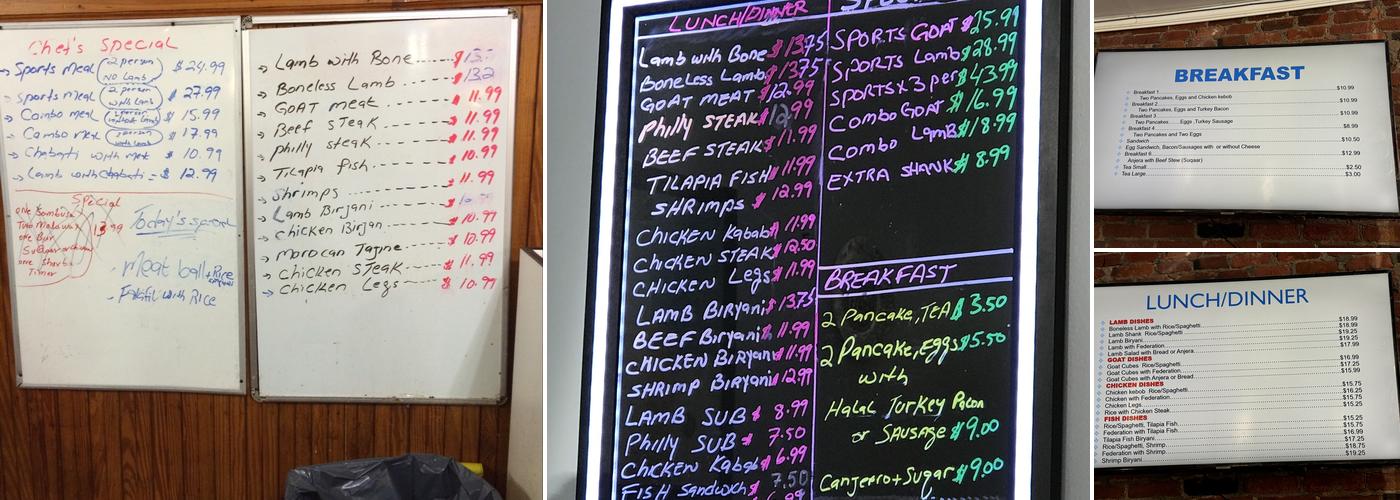 Chef's Special
Sports Meal (2 person NO Lamb) $ 24.99
Sports meal (2 person with Lamb) $ 27.99
Combo meal $ 15.99
Combo Mel $ 17.99
Chabati with met $ 10.99
Lamb with Chabati = $ 12.99
Special
one Sambusa
Two Malawax 13.99
one
one
Today's special
Meat ball + Rice
with Rice
Lamb with Bone $13.
Boneless Lamb $
GOAT meat $ 11.99
Beef STeak $ 11.99
philly steak $ 11.99
TiLapia fish. $ 10.99
Shrimps $ 11.99
Lamb Birjani $
Chicken Birjan $ 10.99
morocan Tagine $ 10.99
Chicken STeak $ 11.99
Chicken Legs $ 10.99
LUNCH/DINNER
Lamb with Bone $ 13.75
Boneless Lamb $ 13.75
GOAT MEAT $12.99
Philly STEAK $12.99
BEEF STEAK $11.99
TILAPIA FISH $11.99
SHRimps $ 12.99
CHICKEN Kabab $ 11.99
CHICKEN STEAK $12.50
CHICKEN Legs $11.99
LAMB BIRyani $13.75
BEEF Biryani $ 11.99
CHICKEN BIRyani $11.99
SHRIMP BIRyani $12.99
LAMB SUB $ 8.99
Philly SUB $ 7.50
CHICKEN Kabab $ 6.99
FISH Sandwich $ 7.50
SPORTS GOAT $25.99
SPORTS Lamb $28.99
SPORTS x 3 per $43.99
Combo GOAT $16.99
Combo LamB $18.99
EXTRA SHANK $ 8.99
BREAKFAST
2 Pancake, TEA $ 3.50
2 Pancake, Eggs $5.50
with
Halal Turkey Bacon
or SAUSAGE $ 9.00
Canjeero + Sugar $9.00
BREAKFAST
Breakfast 1 $10.99
Two Pancakes, Eggs and Chicken kebob
Breakfast 2 $10.99
Two Pancakes, Eggs and Turkey Bacon
Breakfast 3 $10.99
Two Pancakes Eggs ,Turkey Sausage
Breakfast 4 $8.99
Two Pancakes and Two Eggs
Sandwich $10.50
Egg Sandwich, Bacon/Sausages with or without Cheese
Breakfast 6 $12.99
Anjera with Beef Stew (Suqaar)
Tea Small $2.50
Tea Large $3.00
LUNCH/DINNER
LAMB DISHES
Boneless Lamb with Rice/Spaghetti $18.99
Lamb Shank Rice/Spaghetti $18.99
Lamb Biryani $19.25
Lamb with Federation $19.25
Lamb Salad with Bread or Anjera $17.99
GOAT DISHES
Goat Cubes Rice/Spaghetti $16.99
Goat Cubes with Federation $17.25
Goat Cubes with Anjera or Bread $15.99
CHICKEN DISHES
Chicken kebob Rice/Spaghetti $15.75
Chicken with Federation $16.25
Chicken Legs $15.75
Rice with Chicken Steak $15.25
FISH DISHES
Rice/Spaghetti, Tilapia Fish $15.25
Federation with Tilapia Fish $15.75
Tilapia Fish Biryani $16.99
Rice/Spaghetti, Shrimp $17.25
Federation with Shrimp $18.75
Shrimp Biryani $19.25